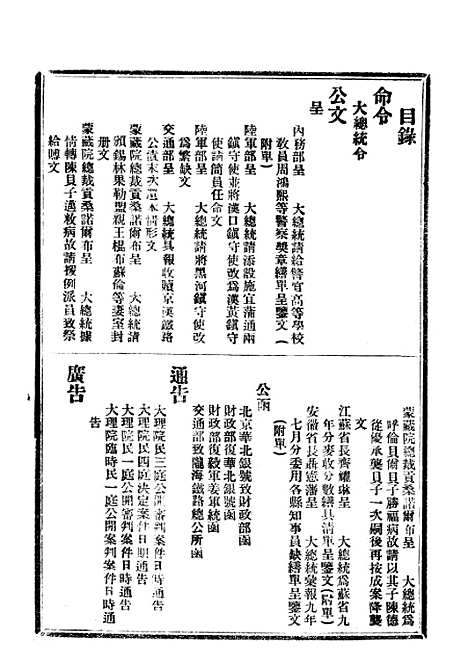 目錄
命令
大總統令
公文
呈
內務部呈　大總統請給警官高等學校
教員周鴻熙等警察獎章繕單呈鑒文（
附單）
陸軍部呈　大總統請添設施宜蒲通兩
鎮守使並將漢口鎮守使改爲漢黃鎮守
使請簡員任命文
陸軍部呈　大總統請將黑河鎮守使改
爲繁缺文
交通部呈　大總統具報收贖京漢鐵路
公債末次還本情形文
蒙藏院總裁貢桑諾爾布呈　大總統請
頒錫林果勒盟親王楊布蘇倫等妻室封
册文
蒙藏院總裁貢桑諾爾布呈　大總統據
情轉陳貝子邁敉病故請援例派員致祭
給賻文
蒙藏院總裁貢桑諾爾布呈　大總統爲
呼倫貝爾貝子勝福病故請以其子陳德
從優承襲貝子一次嗣後再按成案降襲
文
江蘇省長齊耀琳呈　大總統爲蘇省九
年分麥收分數繕具清單呈鑒文（附單）
安徽省長聶憲藩呈　大總統彙報九年
七月分委用各縣知事員缺繕單呈鑒文
（附單）
公函
北京華北銀號致財政部函
財政部復華北銀號函
財政部復毅軍姜軍統函
交通部致隴海鐵路總公所函
通告
大理院民三庭公開審判案件日時通告
大理院民四庭決定案件日期通告
大理院民一庭公開審判案件日時通告
大理院臨時民一庭公開案判案件日時通
告
廣告